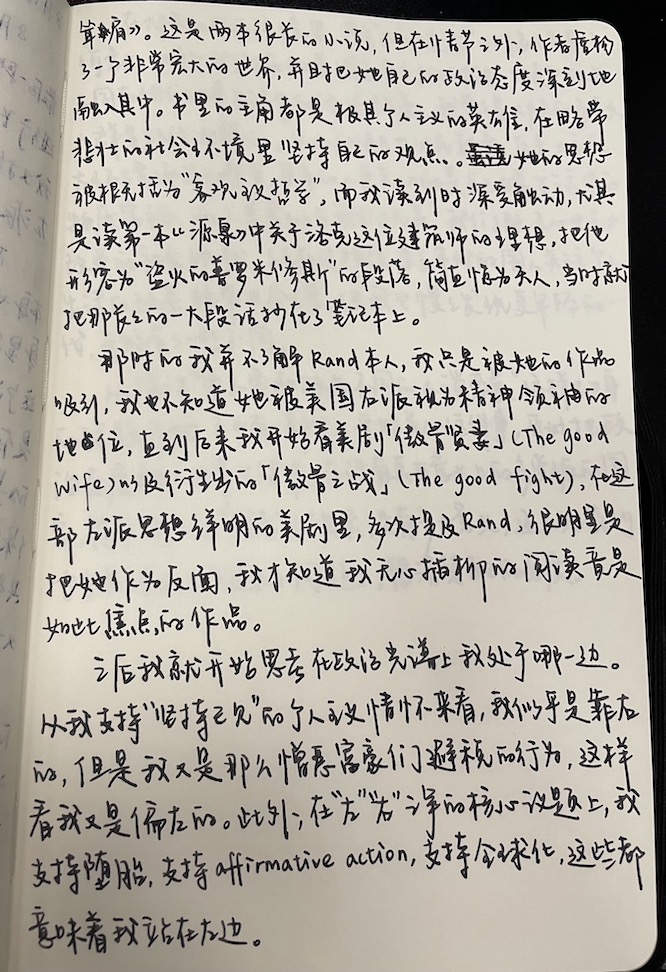 耸肩》。这是两本很长的小说，但在情节之外，作者虚构
了一个非常宏大的世界，并且把她自己的政治态度深刻地
融入其中。书里的主角都是极其个人主义的英雄，在略带
悲壮的社会环境里坚持自己的观点。她的思想
被概括为“客观主义哲学”，而我读到时深受触动，尤其
是读第一本《源泉》中关于洛克这位建筑师的理想，把他
形容为“盗火的普罗米修斯”的段落，简直惊为天人，当时就
把那长长的一大段话抄在了笔记本上。
那时的我并不了解Rand本人，我只是被她的作品
吸引，我也不知道她被美国右派视为精神领袖的
地位，直到后来我开始看美剧「傲骨贤妻」(The good
Wife)以及衍生出的「傲骨之战」(The good fight)，在这
部左派思想鲜明的美剧里，多次提及Rand，很明显是
把她作为反面，我才知道我无心插柳的阅读竟是
如此焦点的作品。
之后我就开始思考在政治光谱上我处于哪一边。
从我支持“坚持己见”的个人主义情怀来看，我似乎是靠右
的，但是我又是那么憎恶富豪们避税的行为，这样
看我又是偏左的。此外，在“左”“右”之争的核心议题上，我
支持堕胎，支持affirmative action，支持全球化，这些都
意味着我站在左边。